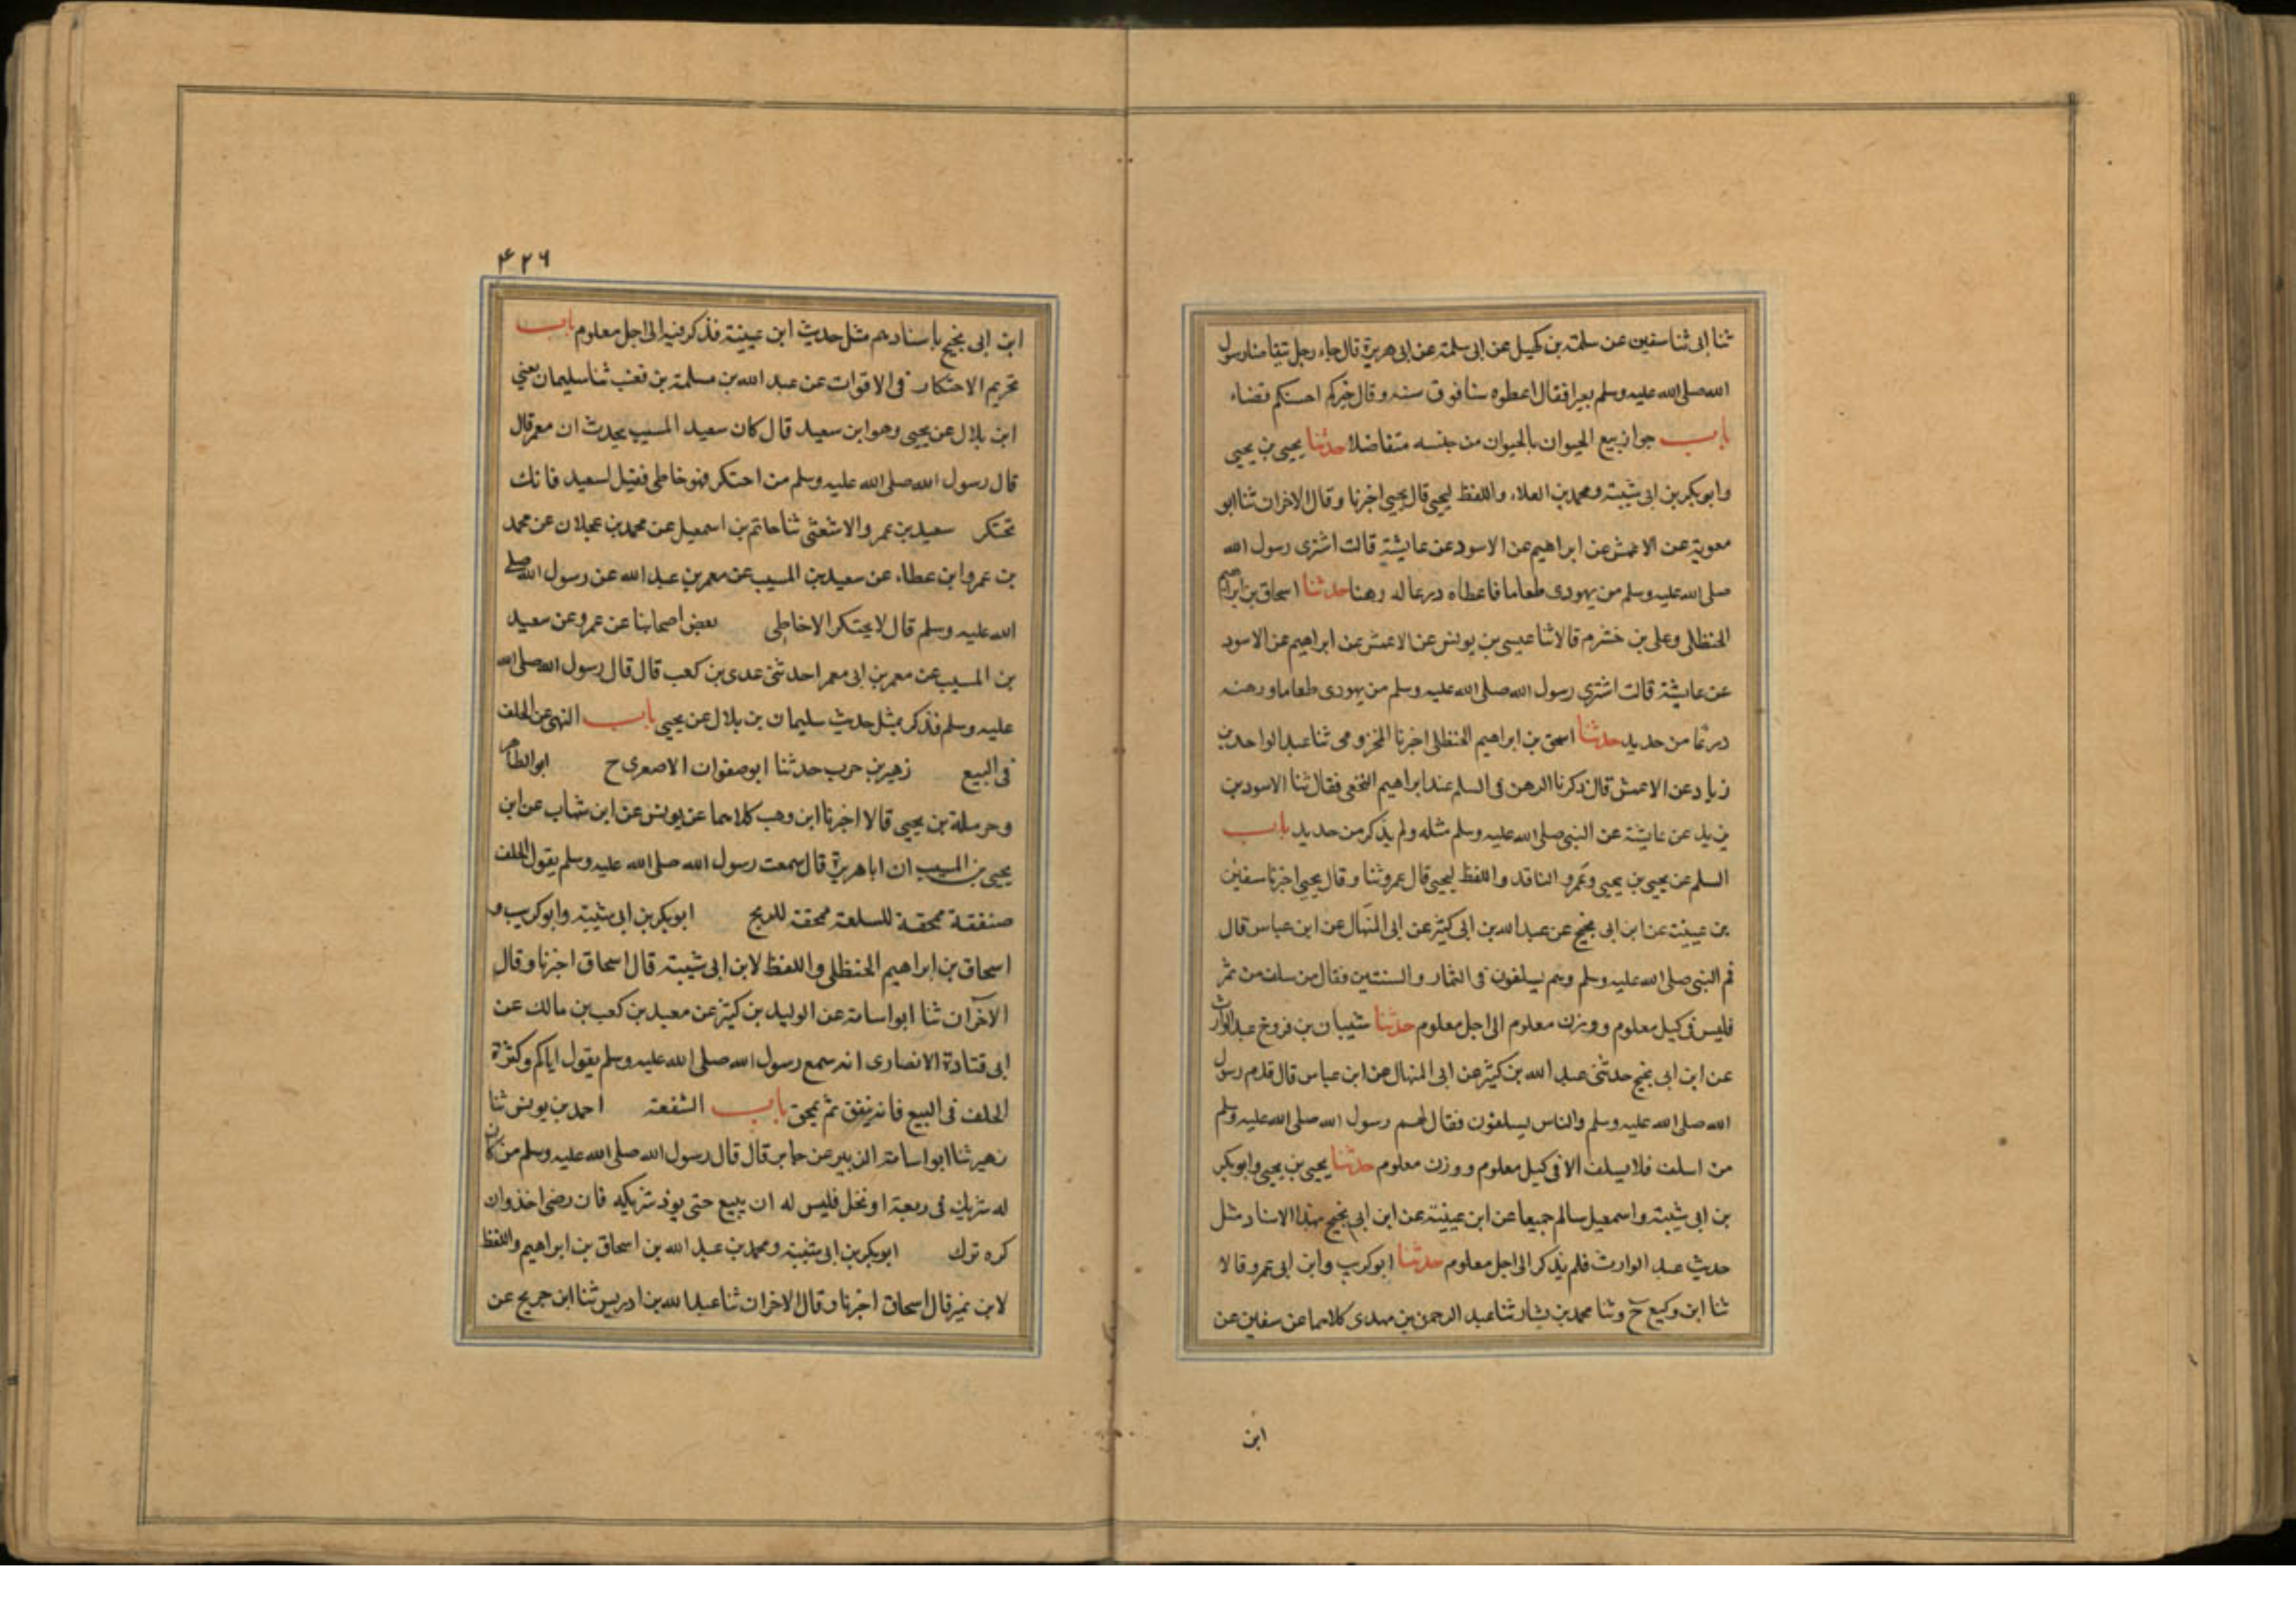 ثنا ابى ثنا سفين عن سلمة بن كهيل عن ابى سلمة عن ابى هريرة قال جاء رجل يتقاضا رسول
الله صلى الله عليه وسلم بعيرا فقال اعطوه سنا فوق سنه وقال خيركم احسنكم قضاء
باب جواز بيع الحيوان بالحيوان من جنسه متفاضلا حدثنا يحيى بن يحيى
وابو بكر بن ابى شيبة ومحمد بن العلاء واللفظ ليحيى قال يحيى اخبرنا وقال الاخران ثنا ابو
معوية عن الاعمش عن ابراهيم عن الاسود عن عايشة قالت اشترى رسول الله
صلى الله عليه وسلم من يهودى طعاما فاعطاه درعا له رهنا حدثنا اسحاق بن ابراهيم
الحنظلى وعلى بن خشرم قالا ثنا عيسى بن يونس عن الاعمش عن ابراهيم عن الاسود
عن عايشة قالت اشترى رسول الله صلى الله عليه وسلم من يهودى طعاما ورهنه
درعا من حديد حدثنا اسحق بن ابراهيم الحنظلى اخبرنا المخزومى ثنا عبد الواحد بن
زياد عن الاعمش قال ذكرنا الرهن فى السلم عند ابراهيم النخعى فقال ثنا الاسود بن
يزيد عن عايشة عن النبى صلى الله عليه وسلم مثله ولم يذكر من حديد باب
السلم عن يحيى بن يحيى وعمرو الناقد واللفظ ليحيى قال عمرو ثنا وقال يحيى اخبرنا سفين
بن عيينة عن ابن ابى نجيح عن عبد الله بن ابى كثير عن ابى المنهال عن ابن عباس قال
قدم النبى صلى الله عليه وسلم وهم يسلفون فى الثمار والسنتين فقال من سلف من تمر
فليس فى كيل معلوم ووزن معلوم الى اجل معلوم حدثنا شيبان بن فروخ عبد الوارث
عن ابن ابى نجيح حدثنى عبد الله بن كثير عن ابى المنهال عن ابن عباس قال قدم رسول
الله صلى الله عليه وسلم والناس يسلفون فقال لهم رسول الله صلى الله عليه وسلم
من اسلف فلا يسلف الا فى كيل معلوم ووزن معلوم حدثنا يحيى بن يحيى وابو بكر
بن ابى شيبة واسمعيل سالم جميعا عن ابن عيينة عن ابن ابى نجيح بهذا الاسناد مثل
حديث عبد الوارث فلم يذكر الى اجل معلوم حدثنا ابو كريب وابن ابى عمرو قالا
ثنا ابن وكيع ح وثنا محمد بن بشار ثنا عبد الرحمن بن مهدى كلاهما عن سفين عن
ابن
٤٢٦
ابن ابى نجيح باسنادهم مثل حديث ابن عيينة فذكر فيه الى اجل معلوم باب
تحريم الاحتكار فى الاقوات عن عبد الله بن مسلمة بن قعنب ثنا سليمان يعنى
ابن بلال عن يحيى وهو ابن سعيد قال كان سعيد المسيب يحدث ان معمر قال
قال رسول الله صلى الله عليه وسلم من احتكر فهو خاطى فقيل لسعيد فانك
تحتكر سعيد بن عمرو الاشعثى ثنا حاتم بن اسمعيل عن محمد بن عجلان عن محمد
بن عمرو ابن عطاء عن سعيد بن المسيب عن معمر بن عبد الله عن رسول الله صلى
الله عليه وسلم قال لا يحتكر الا خاطى بعض اصحابنا عن عمرو عن سعيد
بن المسيب عن معمر بن ابى معمر احد ثنى عدى بن كعب قال قال رسول الله صلى الله
عليه وسلم فذكر بمثل حديث سليمان بن بلال عن يحيى باب النهى عن الحلف
فى البيع زهير بن حرب حدثنا ابو صفوان الاصعرى ح ابو الطاهر
وحرملة بن يحيى قالا اخبرنا ابن وهب كلاهما عن يونس عن ابن شهاب عن ابن
يحيى بن المسيب ان ابا هريرة قال سمعت رسول الله صلى الله عليه وسلم يقول الحلف
صنفقة محقة للسلعة ممحقة للربح ابو بكر بن ابى شيبة وابو كريب و
اسحاق بن ابراهيم الحنظلى واللفظ لابن ابى شيبة قال اسحاق اخبرنا وقال
الآخران ثنا ابو اسامة عن الوليد بن كثير عن معبد بن كعب بن مالك عن
ابى قتادة الانصارى انه سمع رسول الله صلى الله عليه وسلم يقول اياكم وكثرة
الحلف فى البيع فانه ينفق ثم يمحق باب الشفعة احمد بن يونس ثنا
زهير ثنا ابو اسامة الزبير عن جابر قال قال رسول الله صلى الله عليه وسلم من كان
له شريك فى ربعة او نخل فليس له ان يبيع حتى يوذ شريكه فان رضى اخذ وان
كره ترك ابو بكر بن ابى شيبة ومحمد بن عبد الله بن اسحاق بن ابراهيم واللفظ
لابن نمير قال اسحاق اخبرنا وقال الاخران ثنا عبد الله بن ادريس ثنا ابن جريج عن